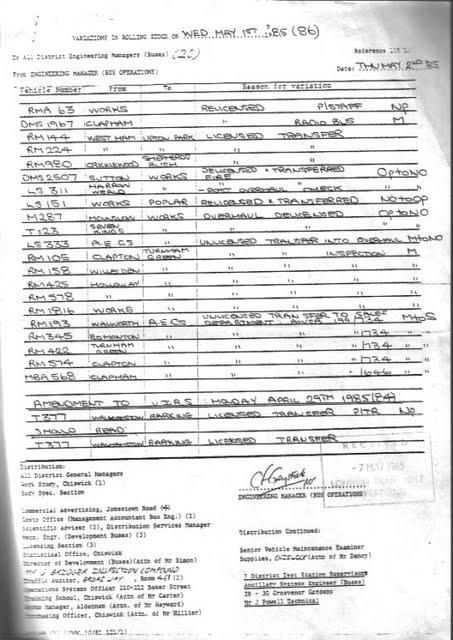 VARIATIONS IN ROLLING STOCK ON WED MAY 1ST '85 (86)
To All District Engineering Managers (Buses) (20)
Reference
From ENGINEERING MANAGER (BUS OPERATIONS)
Date: THU MAY 2ND 85
Vehicle Number From To Reason for variation
RMA 63 WORKS RELICENSED P/STAFF NP
DMS 1967 CLAPHAM " RADIO BUS M
RM 144 WEST HAM UPTON PARK LICENSED TRANSFER
RM 224 " " " "
RM 980 SHEPHERDS BUSH " "
DMS 2507 SUTTON WORKS DELICENSED & TRANSFERRED FIRE OptoNO
LS 311 HARROW WEALD " - POST OVERHAUL CHECK "
LS 151 WORKS POPLAR RELICENSED & TRANSFERRED NOtoOp
M287 WORKS OVERHAUL DELICENSED OptoNO
T 123 SEVEN KINGS " " " "
LS 333 A.E.C S " UNLICENSED TRANSFER INTO OVERHAUL MtoNO
RM 105 CLAPTON TURNHAM GREEN " INSPECTION M
RM 158 WILLESDEN " " " "
RM 425 HOLLOWAY " " " "
RM 578 " " " " "
RM 1816 WORKS " " " "
RM 193 WALWORTH A.E.C S UNLICENSED TRANSFER TO SALES DEPARTMENT 199/734 MtoS
RM 345 EDMONTON " " " "/734 " "
RM 422 TURNHAM GREEN " " " "/734 " "
RM 574 CLAPTON " " " "/734 " "
MBA 568 CLAPHAM " " " "/646 " "
AMENDMENT TO V.I.R.S: MONDAY APRIL 29TH 1985 (84)
T377 WALTHAMSTOW BARKING LICENSED TRANSFER P/TR NP
SHOULD READ
T377 WALTHAMSTOW BARKING LICENSED TRANSFER
RECEIVED
-7 MAY 1985
LONDON TRANSPORT
ADVERTISING
ENGINEERING MANAGER (BUS OPERATIONS)
Distribution:
All District General Managers
Work Study, Chiswick (1)
Body Spec. Section
Commercial Advertising, Jamestown Road (4)
Costs Office (Management Accountant Bus Eng.) (2)
Scientific Adviser (2), Distribution Services Manager
Mech. Engr. (Development Buses) (3)
Licensing Section (3)
Statistical Office, Chiswick
Director of Development (Buses)(Attn of Mr Simon)
INSPECTION COMPOUND
Traffic Auditor, BROADWAY, Room 461 (2)
Operations Systems Officer 210-222 Baker Street
Training School, Chiswick (Attn of Mr Carter)
Works manager, Aldenham (Attn. of Mr Hayward)
Purchasing Officer, Chiswick (Attn. of Mr Hillier)
Distribution Continued:
Senior Vehicle Maintenance Examiner
Supplies, CHISWICK (Attn of Mr Dancy)
7 District Test Station Supervisors
Ancillary Systems Engineer (Buses)
28 - 30 Grosvenor Gardens
Mr J Powell Technical